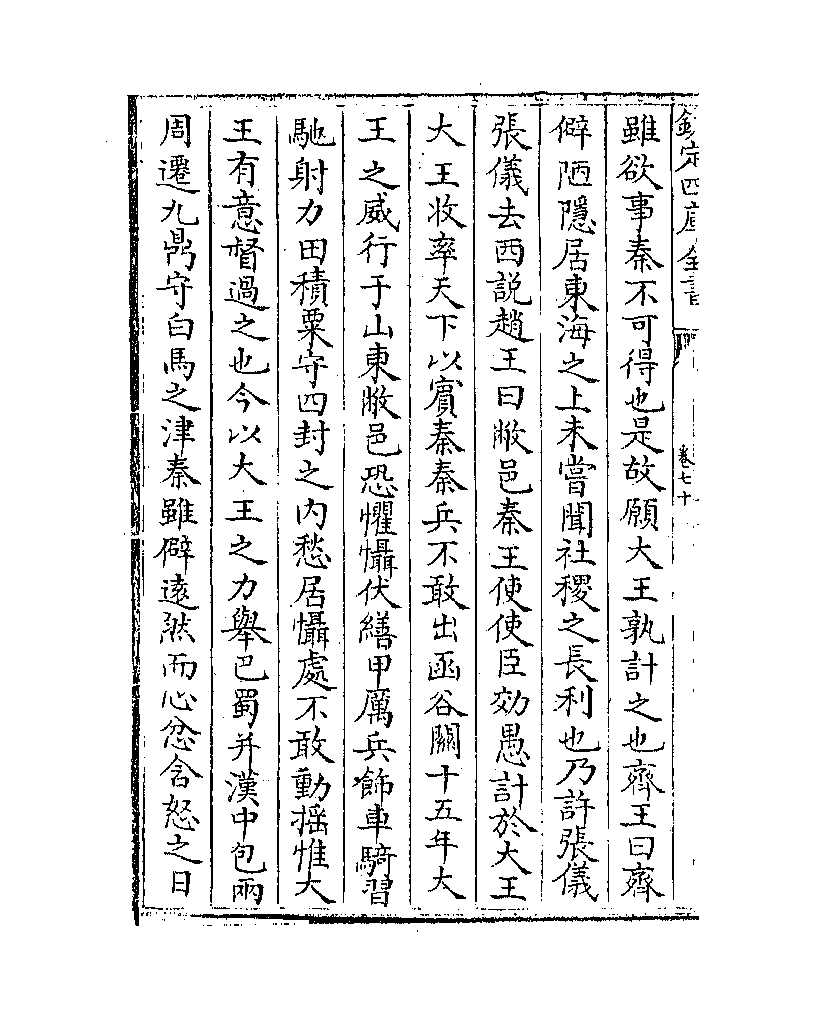 欽定四庫全書
卷七十
雖欲事秦不可得也是故願大王孰計之也齊王曰齊
僻陋隱居東海之上未嘗聞社稷之長利也乃許張儀
張儀去西説趙王曰敝邑秦王使使臣効愚計於大王
大王收率天下以賓秦秦兵不敢出函谷關十五年大
王之威行于山東敝邑恐懼懾伏繕甲厲兵飾車騎習
馳射力田積粟守四封之内愁居懾處不敢動揺惟大
王有意督過之也今以大王之力舉巴蜀并漢中包兩
周遷九鼎守白馬之津秦雖僻逺然而心忿含怒之日